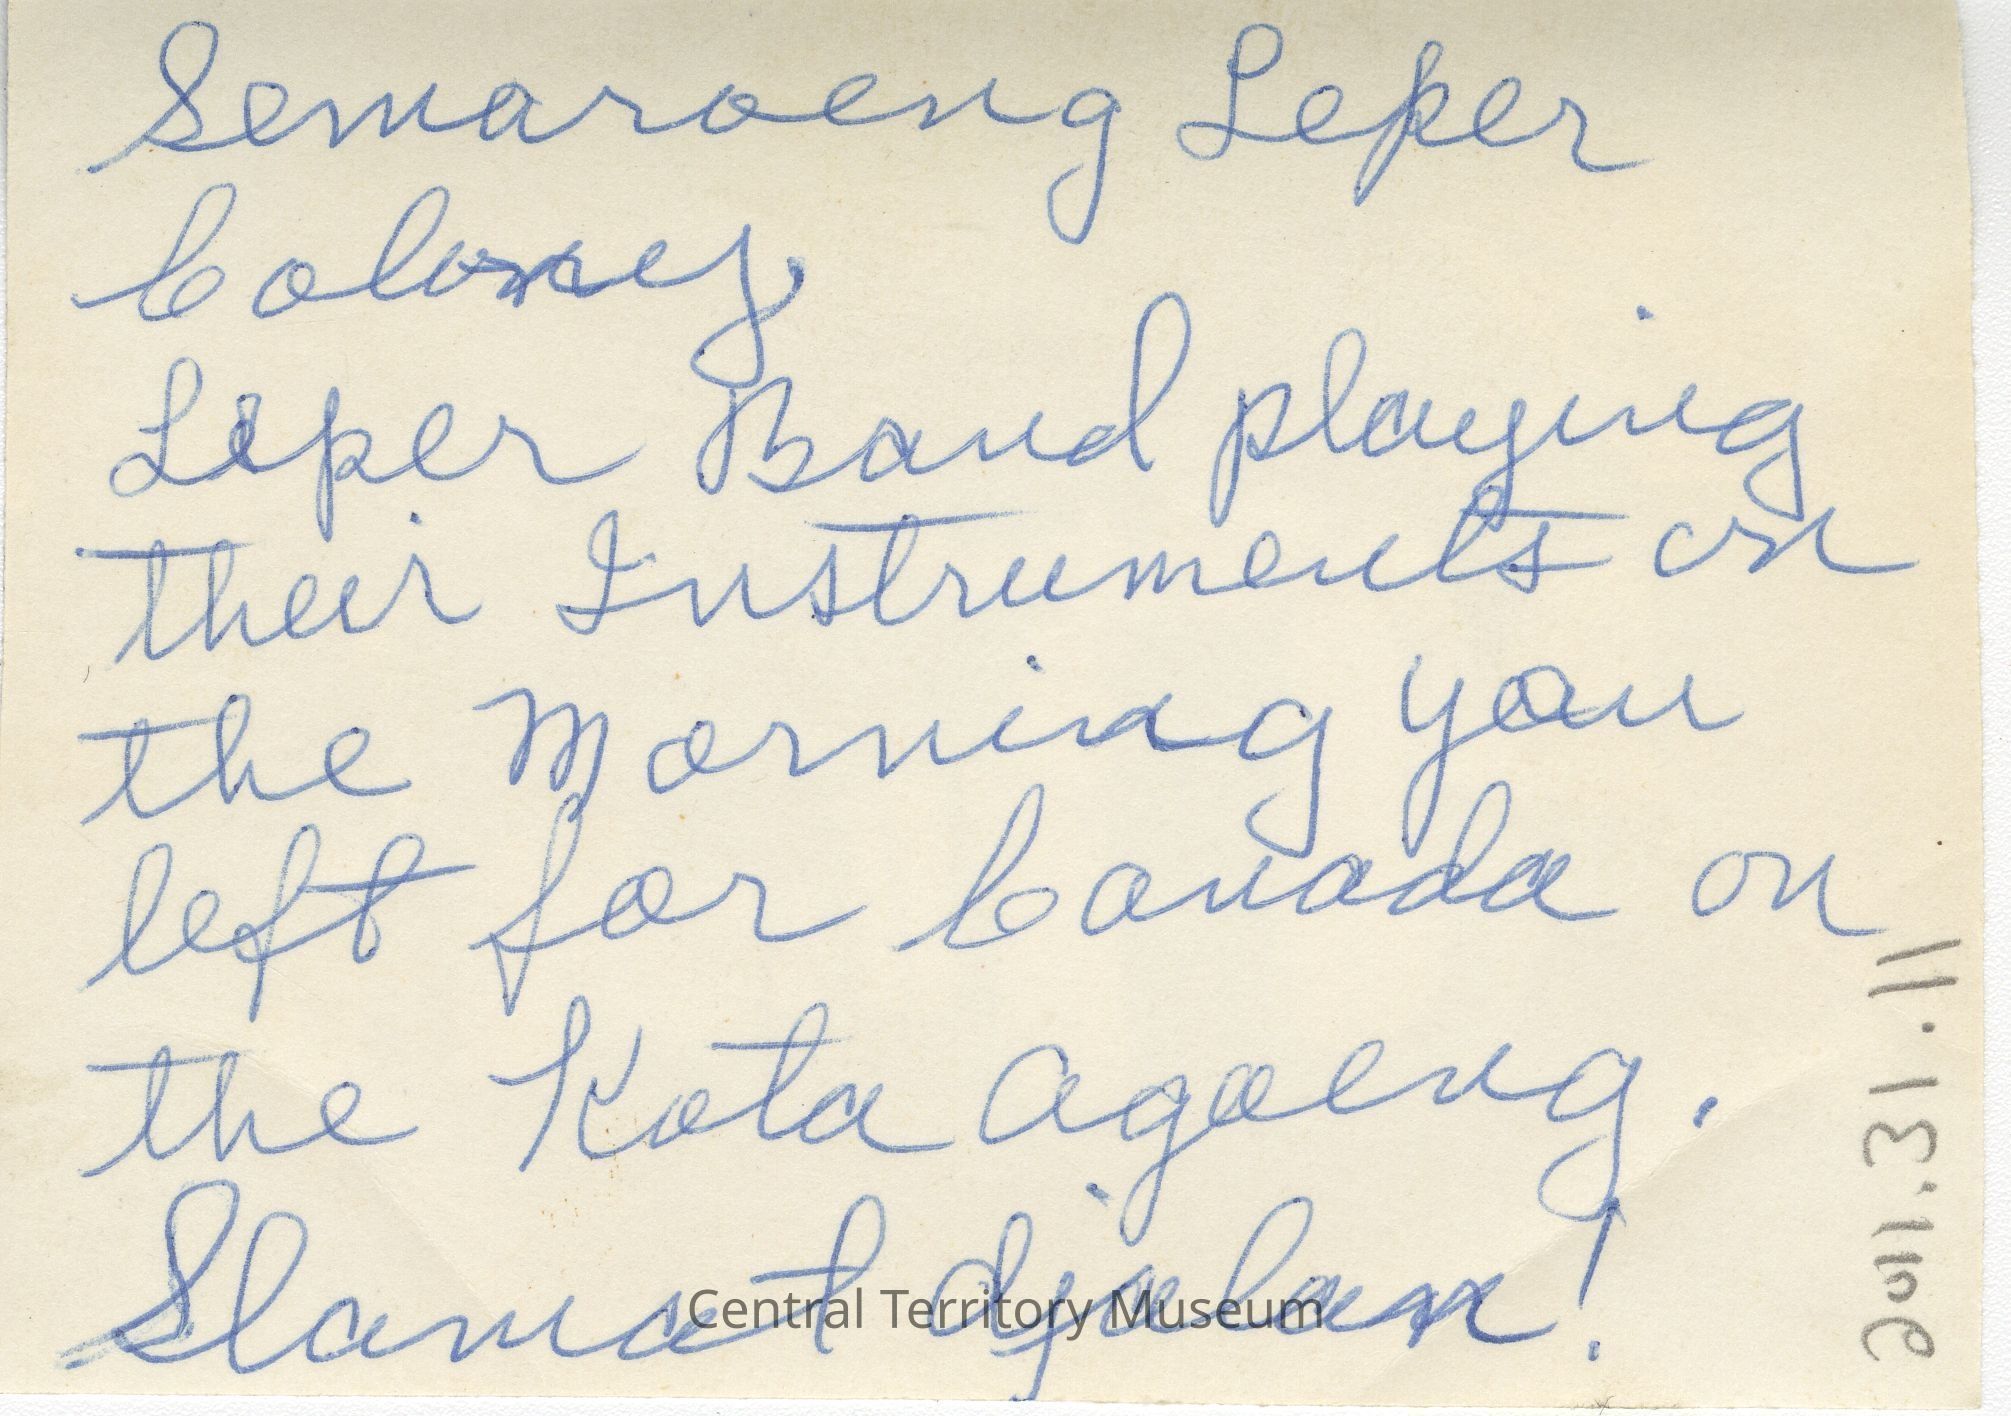 Semaroeng Leper
Colony
Leper Band playing
their Instruments on
the Morning you
left for Canada on
the Kota Agoeng.
Slamat djalan!
2011.31.11
Central Territory Museum